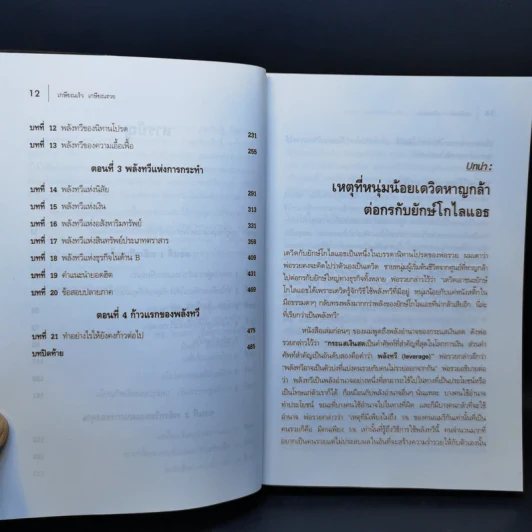 12 | เกษียณเร็ว เกษียณรวย
บทที่ 12 พลังทวีของนิทานโปรด 231
บทที่ 13 พลังทวีของความเอื้อเฟื้อ 255
ตอนที่ 3 พลังทวีแห่งการกระทำ
บทที่ 14 พลังทวีแห่งนิสัย 291
บทที่ 15 พลังทวีแห่งเงิน 313
บทที่ 16 พลังทวีแห่งอสังหาริมทรัพย์ 331
บทที่ 17 พลังทวีแห่งสินทรัพย์ประเภทตราสาร 359
บทที่ 18 พลังทวีแห่งธุรกิจในด้าน B 409
บทที่ 19 คำแนะนำยอดฮิต 431
บทที่ 20 ข้อสอบปลายภาค 469
ตอนที่ 4 ก้าวแรกของพลังทวี
บทที่ 21 ทำอย่างไรให้ยังคงก้าวต่อไป 475
บทปิดท้าย 485
บทนำ :
เหตุที่หนุ่มน้อยเดวิดหาญกล้า
ต่อกรกับยักษ์โกไลแอธ
เดวิดกับยักษ์โกไลแอธเป็นหนึ่งในบรรดานิทานโปรดของพ่อรวย ผมเดาว่า
พ่อรวยคงจะคิดไปว่าตัวเองเป็นเดวิด ชายหนุ่มผู้เริ่มต้นชีวิตจากศูนย์ที่หาญกล้า
ไปต่อกรกับยักษ์ใหญ่ทางธุรกิจทั้งหลาย พ่อรวยกล่าวไว้ว่า "เดวิดเอาชนะยักษ์
โกไลแอธได้เพราะเดวิดรู้จักวิธีใช้พลังทวีที่มีอยู่ หนุ่มน้อยกับแค่หนังสติ๊กใน
มือธรรมดาๆ กลับทรงพลังมากกว่าพลังของยักษ์โกไลแอธที่น่ากลัวเสียอีก นี่ละ
ที่เรียกว่าเป็นพลังทวี"
หนังสือเล่มก่อนๆ ของผมพูดถึงพลังอำนาจของกระแสเงินสด ดังพ่อ
รวยกล่าวไว้ว่า "กระแสเงินสดเป็นคำศัพท์ที่สำคัญที่สุดในโลกการเงิน ส่วนคำ
ศัพท์ที่สำคัญเป็นอันดับสองคือคำว่า พลังทวี (leverage)" พ่อรวยกล่าวอีกว่า
"พลังทวีอาจเป็นตัวบ่งที่แบ่งคนรวยกับคนไม่รวยออกจากกัน" พ่อรวยอธิบายต่อ
ว่า พลังทวีเป็นพลังอำนาจอย่างหนึ่งที่สามารถใช้ไปในทางที่เป็นประโยชน์หรือ
เป็นโทษแก่ตัวเราก็ได้ ก็เหมือนกับพลังอำนาจอื่นๆ นั่นแหละ บางคนใช้อำนาจ
ทำประโยชน์ ขณะที่บางคนใช้อำนาจไปในทางที่ผิด และก็มีบางคนกลัวที่จะใช้
อำนาจ พ่อรวยกล่าวว่า "เหตุที่มีเพียงไม่ถึง ๕% ของคนอเมริกันเท่านั้นที่เป็น
คนรวยก็คือ มีคนเพียง ๕% เท่านั้นที่รู้ถึงวิธีการใช้พลังทวีนี้ คนจำนวนมากที่
อยากเป็นคนรวยแต่ไม่ประสบผลในอันที่จะสร้างความร่ำรวยให้กับตัวเองนั้น